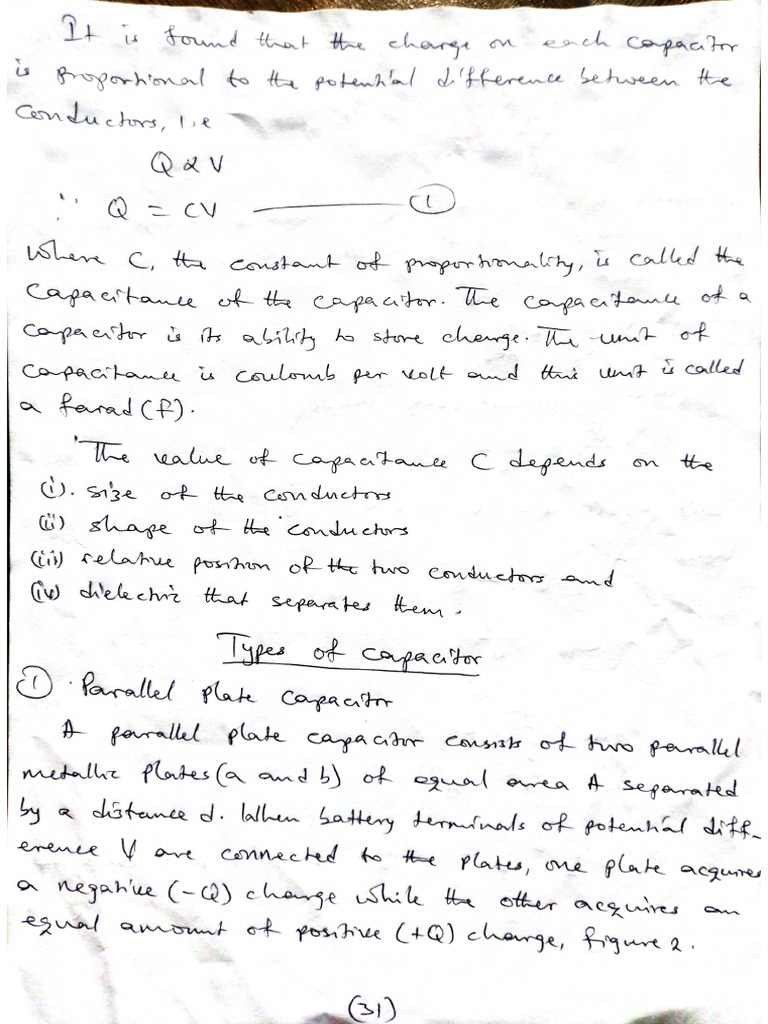 It is found that the charge on each capacitor
is proportional to the potential difference between the
conductors, i.e
Q ∝ V
∴ Q = CV ——— ①
Where C, the constant of proportionality, is called the
Capacitance of the capacitor. The capacitance of a
capacitor is its ability to store charge. The unit of
capacitance is coulomb per volt and this unit is called
a farad (f).
The value of capacitance C depends on the
(i). size of the conductors
(ii) shape of the conductors
(iii) relative position of the two conductors and
(iv) dielectric that separates them.
Types of capacitor
① Parallel plate capacitor
A parallel plate capacitor consists of two parallel
metallic plates (a and b) of equal area A separated
by a distance d. When battery terminals of potential diff-
erence V are connected to the plates, one plate acquires
a negative (-Q) charge while the other acquires an
equal amount of positive (+Q) charge, figure 2.
(31)